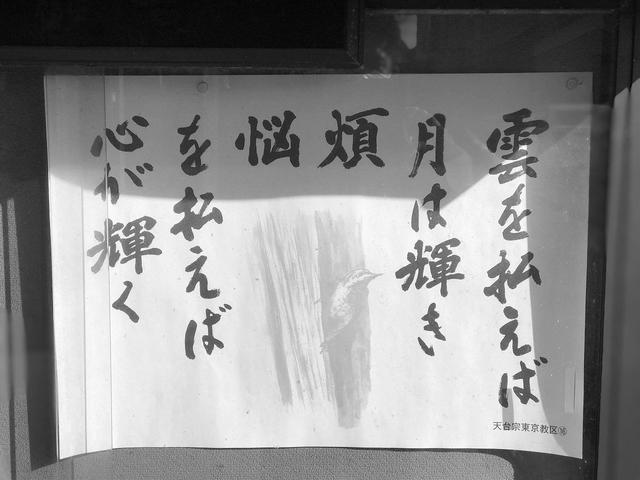 雲を払えば
月は輝き
煩
悩
を払えば
心が輝く
天台宗東京教区⑯